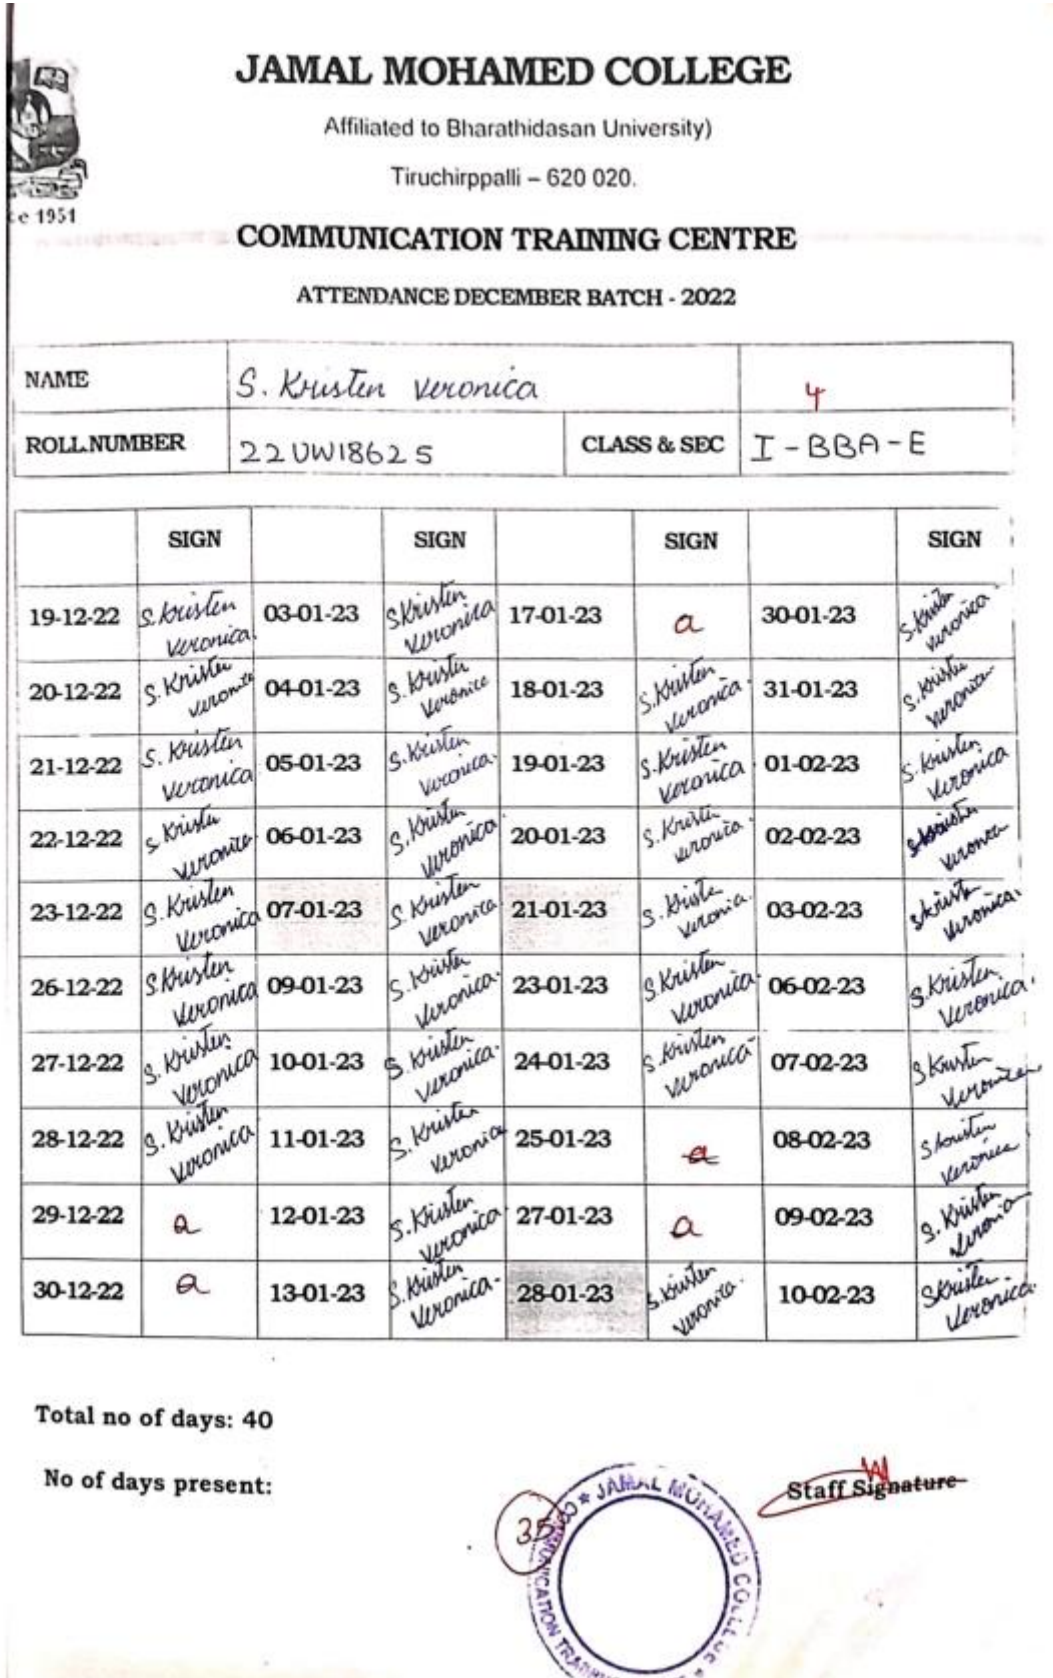 JAMAL MOHAMED COLLEGE
Affiliated to Bharathidasan University)
Tiruchirppalli – 620 020.
e 1951
COMMUNICATION TRAINING CENTRE
ATTENDANCE DECEMBER BATCH - 2022
NAME S. Kristen Veronica 4
ROLL.NUMBER 22UW18625 CLASS & SEC I - BBA - E
SIGN SIGN SIGN SIGN
19-12-22 S. Kristen Veronica 03-01-23 S Kristen Veronica 17-01-23 a 30-01-23 S. Kristen Veronica
20-12-22 S. Kristen Veronica 04-01-23 S. Kristen Veronica 18-01-23 S. Kristen Veronica 31-01-23 S. Kristen Veronica
21-12-22 S. Kristen Veronica 05-01-23 S. Kristen Veronica 19-01-23 S. Kristen Veronica 01-02-23 S. Kristen Veronica
22-12-22 S Kristen Veronica 06-01-23 S. Kristen Veronica 20-01-23 S. Kristen Veronica 02-02-23 S Kristen Veronica
23-12-22 S. Kristen Veronica 07-01-23 S Kristen Veronica 21-01-23 S. Kristen Veronica 03-02-23 S Kristen Veronica
26-12-22 S. Kristen Veronica 09-01-23 S. Kristen Veronica 23-01-23 S. Kristen Veronica 06-02-23 S. Kristen Veronica
27-12-22 S. Kristen Veronica 10-01-23 S. Kristen Veronica 24-01-23 S. Kristen Veronica 07-02-23 S Kristen Veronica
28-12-22 S. Kristen Veronica 11-01-23 S. Kristen Veronica 25-01-23 a 08-02-23 S Kristen Veronica
29-12-22 a 12-01-23 S. Kristen Veronica 27-01-23 a 09-02-23 S. Kristen Veronica
30-12-22 a 13-01-23 S. Kristen Veronica 28-01-23 S. Kristen Veronica 10-02-23 S Kristen Veronica
Total no of days: 40
No of days present: 35
Staff Signature
JAMAL MOHAMED COLLEGE